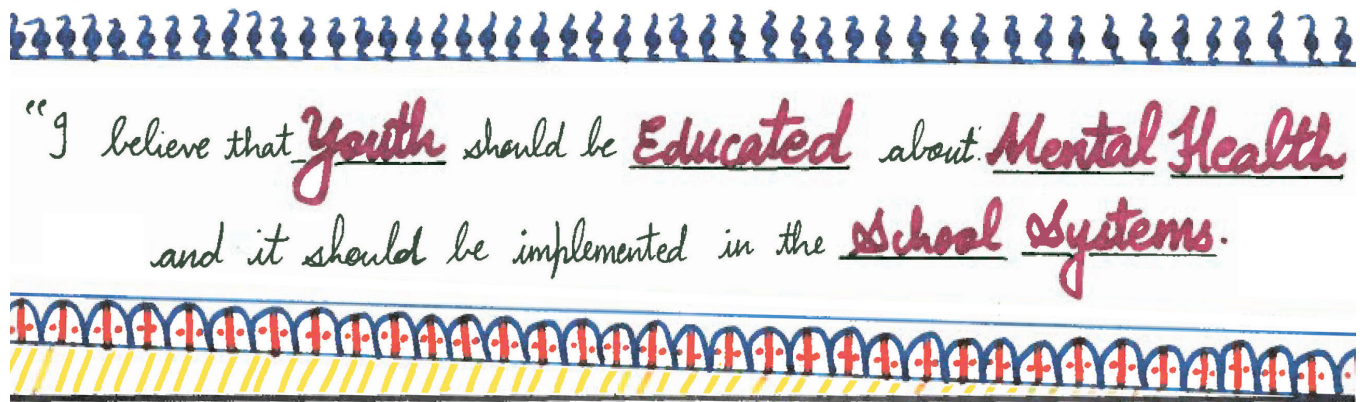 "I believe that Youth should be Educated about Mental Health
and it should be implemented in the School Systems.